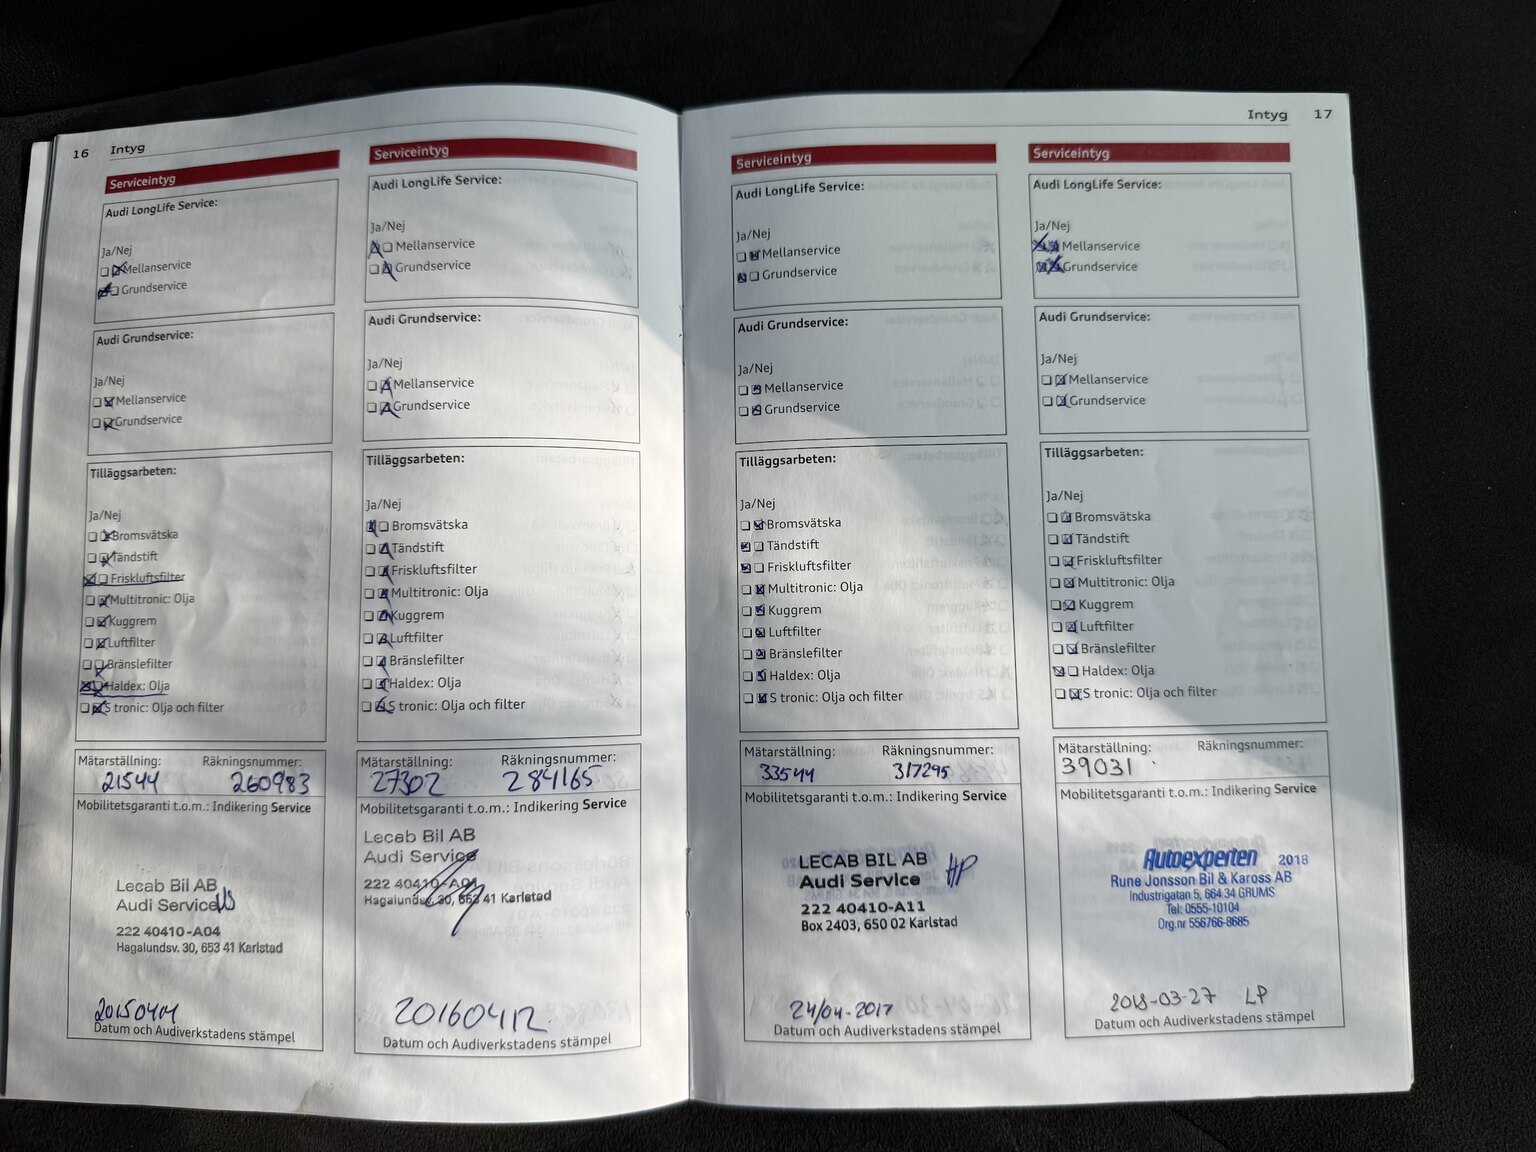 16 Intyg
Serviceintyg
Audi LongLife Service:
Ja/Nej
Mellanservice
Grundservice
Audi Grundservice:
Ja/Nej
Mellanservice
Grundservice
Tilläggsarbeten:
Ja/Nej
Bromsvätska
Tändstift
Friskluftsfilter
Multitronic: Olja
Kuggrem
Luftfilter
Bränslefilter
Haldex: Olja
S tronic: Olja och filter
Mätarställning: Räkningsnummer:
21544 260983
Mobilitetsgaranti t.o.m.: Indikering Service
Lecab Bil AB
Audi Service
222 40410-A04
Hagalundsv. 30, 653 41 Karlstad
Datum och Audiverkstadens stämpel
Serviceintyg
Audi LongLife Service:
Ja/Nej
Mellanservice
Grundservice
Audi Grundservice:
Ja/Nej
Mellanservice
Grundservice
Tilläggsarbeten:
Ja/Nej
Bromsvätska
Tändstift
Friskluftsfilter
Multitronic: Olja
Kuggrem
Luftfilter
Bränslefilter
Haldex: Olja
S tronic: Olja och filter
Mätarställning: Räkningsnummer:
27302 284165
Mobilitetsgaranti t.o.m.: Indikering Service
Lecab Bil AB
Audi Service
222 40410-A01
Hagalundsv. 30, 653 41 Karlstad
20160412
Datum och Audiverkstadens stämpel
Intyg 17
Serviceintyg
Audi LongLife Service:
Ja/Nej
Mellanservice
Grundservice
Audi Grundservice:
Ja/Nej
Mellanservice
Grundservice
Tilläggsarbeten:
Ja/Nej
Bromsvätska
Tändstift
Friskluftsfilter
Multitronic: Olja
Kuggrem
Luftfilter
Bränslefilter
Haldex: Olja
S tronic: Olja och filter
Mätarställning: Räkningsnummer:
33544 317295
Mobilitetsgaranti t.o.m.: Indikering Service
LECAB BIL AB HP
Audi Service
222 40410-A11
Box 2403, 650 02 Karlstad
24/04-2017
Datum och Audiverkstadens stämpel
Serviceintyg
Audi LongLife Service:
Ja/Nej
Mellanservice
Grundservice
Audi Grundservice:
Ja/Nej
Mellanservice
Grundservice
Tilläggsarbeten:
Ja/Nej
Bromsvätska
Tändstift
Friskluftsfilter
Multitronic: Olja
Kuggrem
Luftfilter
Bränslefilter
Haldex: Olja
S tronic: Olja och filter
Mätarställning: Räkningsnummer:
39031
Mobilitetsgaranti t.o.m.: Indikering Service
Autoexperten 2018
Rune Jonsson Bil & Kaross AB
Industrigatan 5, 664 34 GRUMS
Tel: 0555-10104
Org.nr 556766-8685
2018-03-27 LP
Datum och Audiverkstadens stämpel